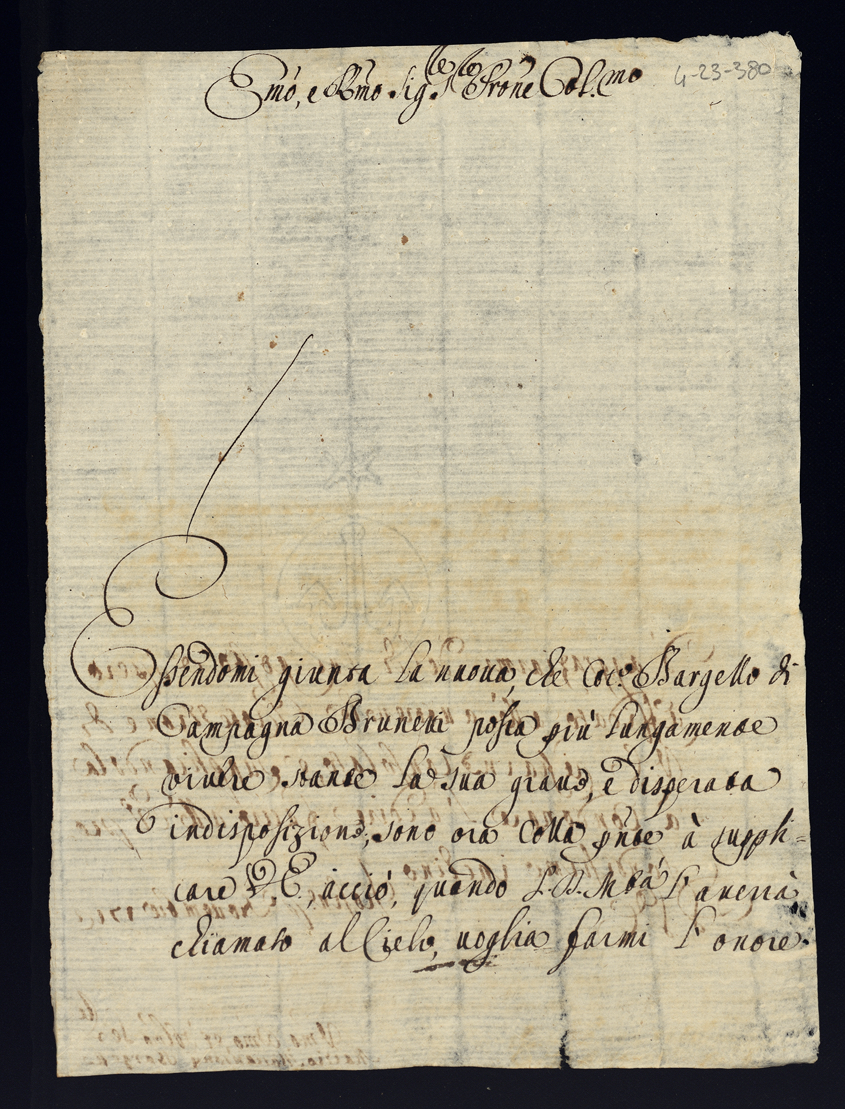 Emo, e Rmo Sig.re, Sig.re Prone Col.mo
4-23-380
Essendomi giunta la nuova, che cotes.o Bargello di
Campagna Brunetti possa più lungamente
vivere stante la sua grave, e disperata
indisposizione, sono ora colla pnte à suppli=
care V.E., acciò, quando S.D.Mtà l'averrà
chiamato al Cielo, voglia farmi l'onore